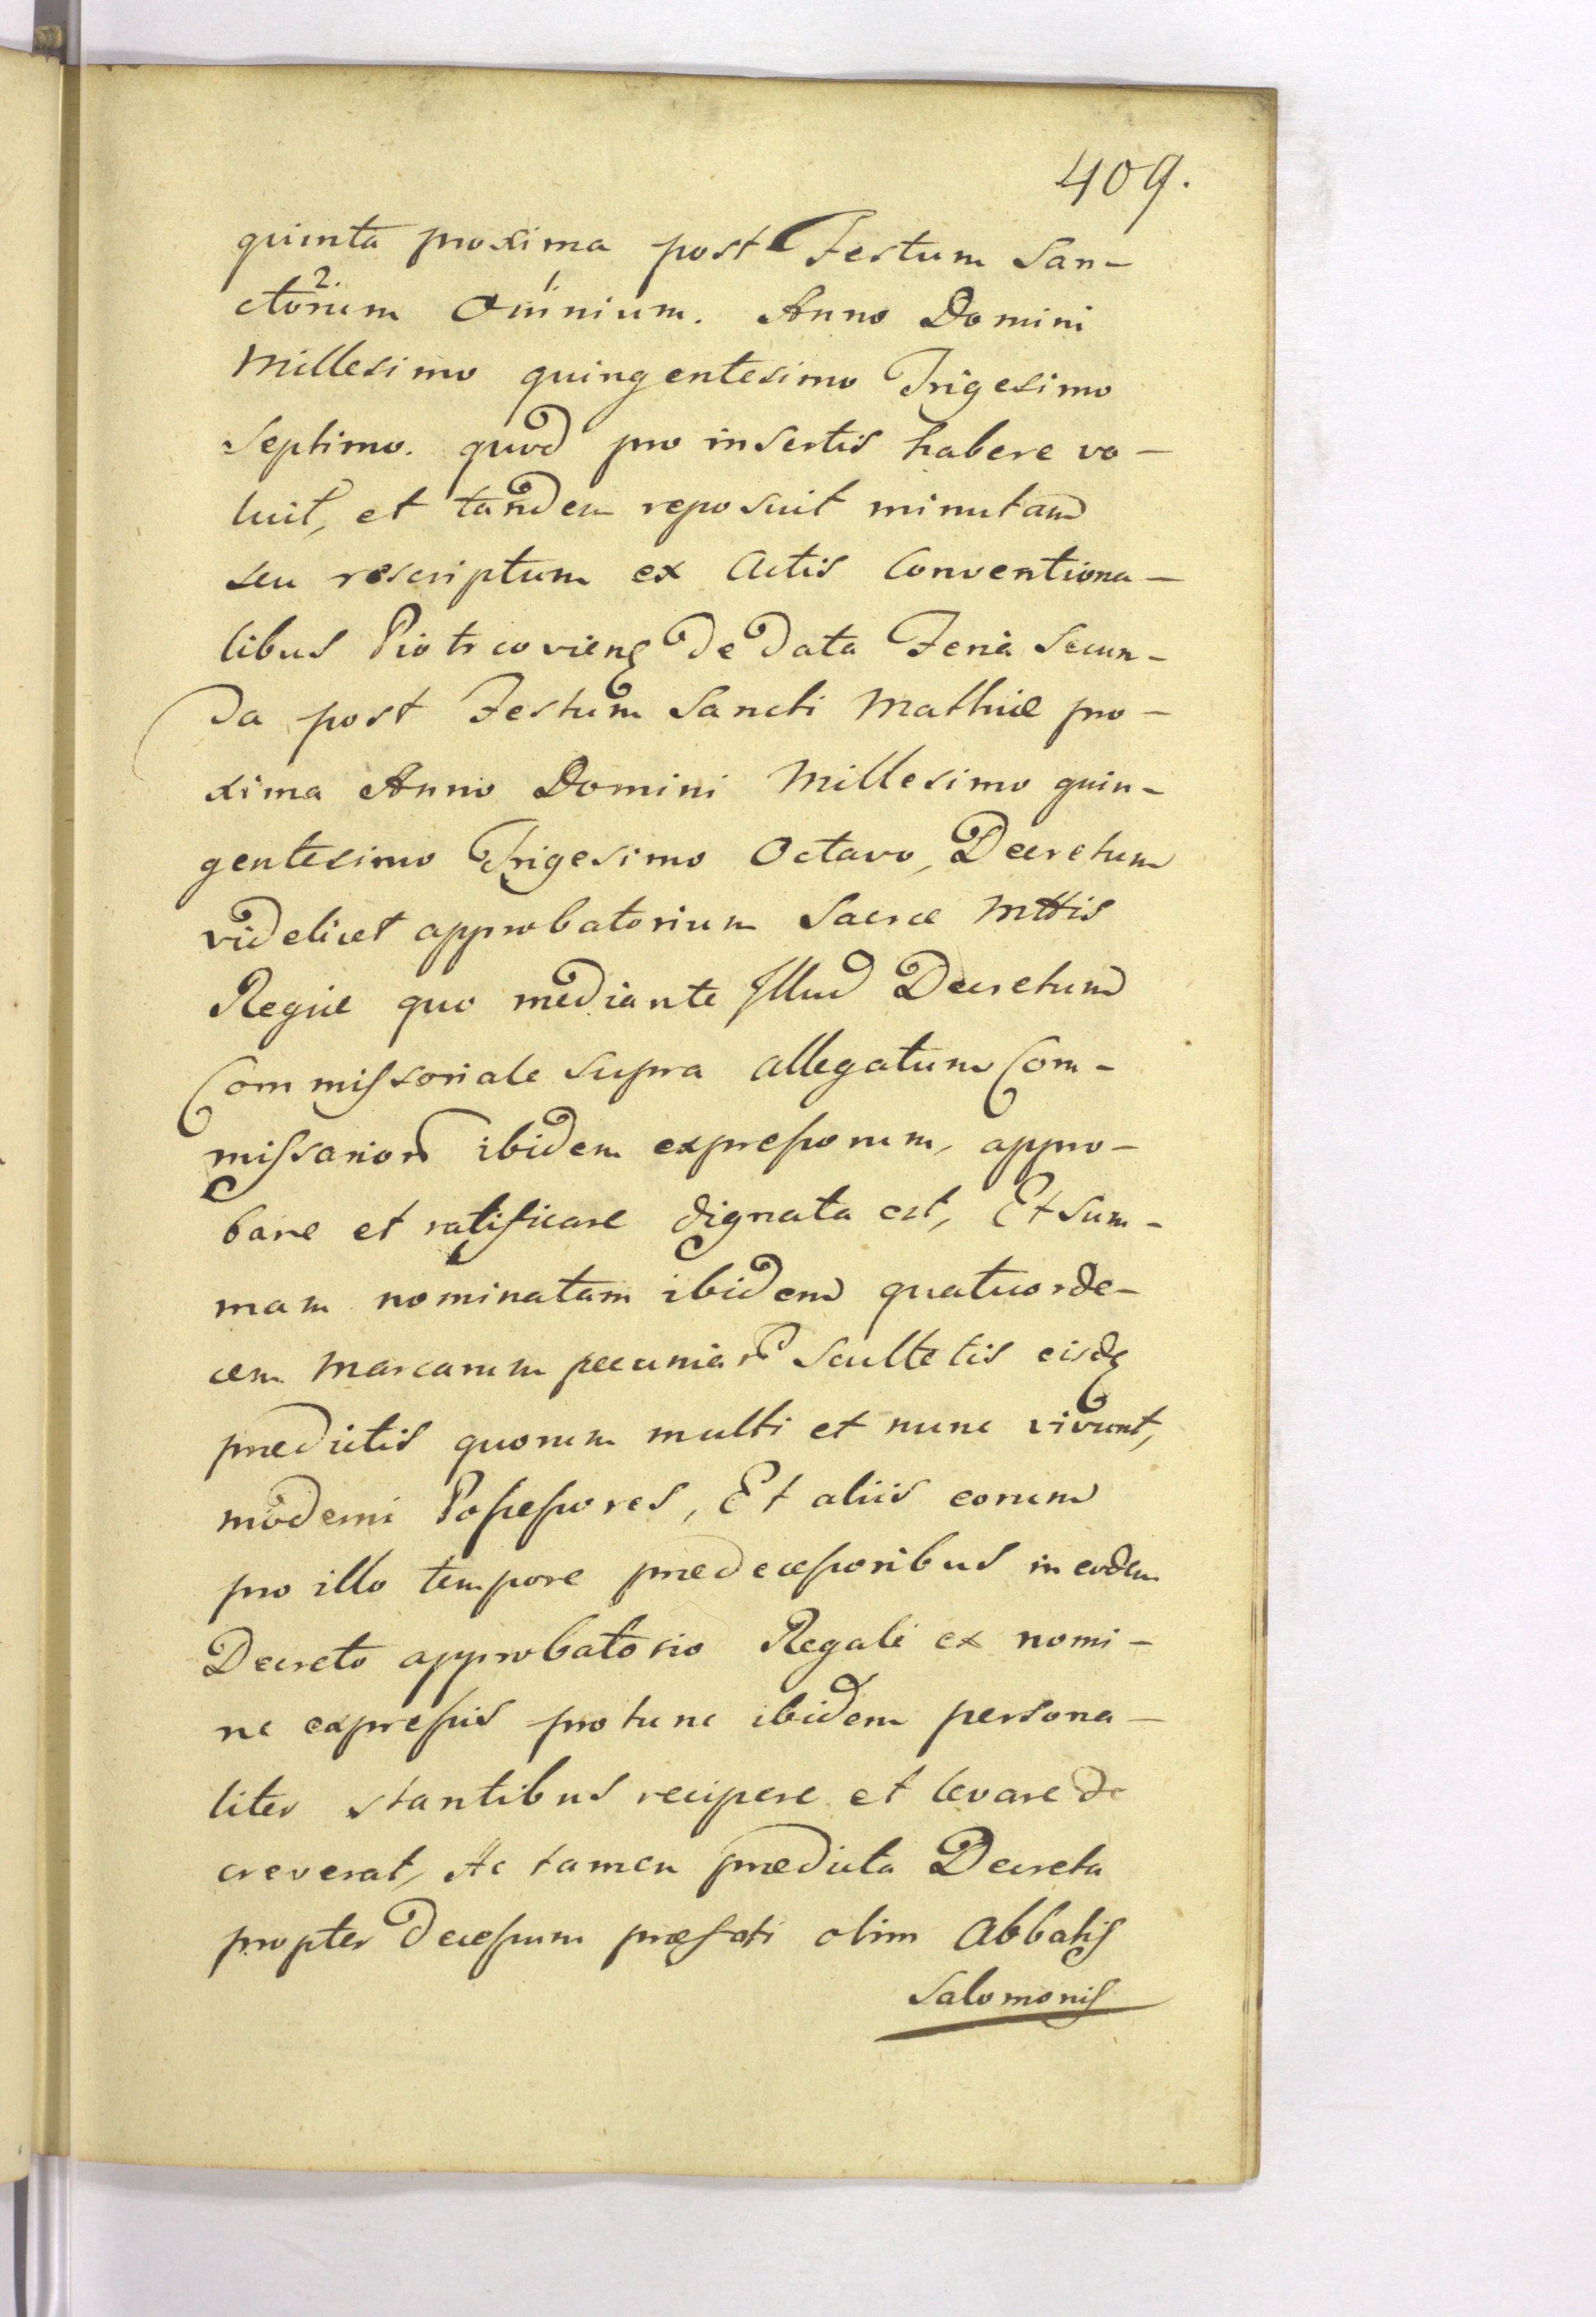 409.
quinta proxima post Festum San-
ctorum 2. Omnium 1. Anno Domini
Millesimo quingentesimo Trigesimo
Septimo. quod pro insertis habere vo-
luit, et tandem reposuit minutam
seu rescriptum ex Actis Conventiona-
libus Piotrcovieng de data Feria Secun-
da post Festum Sancti Mathiæ pro-
xima Anno Domini Millesimo quin-
gentesimo Trigesimo Octavo, Decretum
videlicet approbatorium Sacræ Mttis
Regiæ quo mediante Illud Decretum
Commissoriale supra allegatum Com-
missarior ibidem expressorum, appro-
bare et ratificare dignata est, Et Sum-
mam nominatam ibidem quatuorde-
cem Marcarum pecuniar Scultetis eisdę
prædictis quorum multi et nunc vivunt,
moderni Possessores, Et aliis eorum
pro illo tempore prædecessoribus in eodem
Decreto approbatorio Regali ex nomi-
ne expressis protunc ibidem persona-
liter stantibus recipere et levare de
creverat, Ac tamen prædicta Decreta
propter decessum præfati olim Abbatis
Salomonis